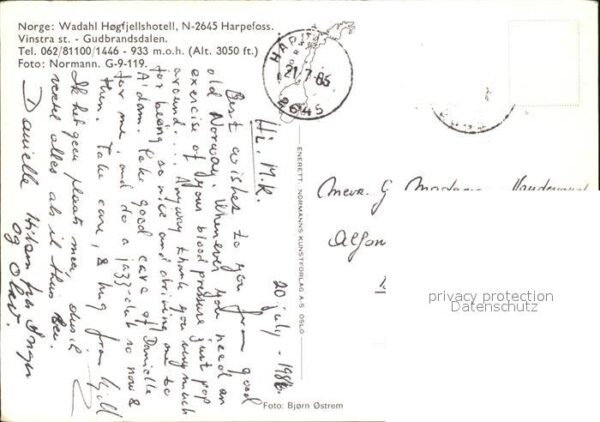 Norge: Wadahl Høgfjellshotell, N-2645 Harpefoss.
Vinstra st. - Gudbrandsdalen.
Tel. 062/81100/1446 - 933 m.o.h. (Alt. 3050 ft.)
Foto: Normann. G-9-119.
21.7.86
2645
20 july - 1986.
Hi, M.K.
Best wishes to you from good
old Norway. Whenever you need an
exercise of your blood pressure just pop
around... Anyway thank you very much
for being so nice and driving me to
A'dam. Take good care of Danielle
for me, and do a jazz-club so now &
then. Take care, & hug from Kjell
Ik heb geen plaats meer, dus ik
vertel alles als ik thuis ben.
Danielle Hilsen fra Inger
og Olav.
ENERETT: NORMANNS KUNSTFORLAG A·S OSLO
Foto: Bjørn Østrem
Mevr. G
Alfon
privacy protection
Datenschutz